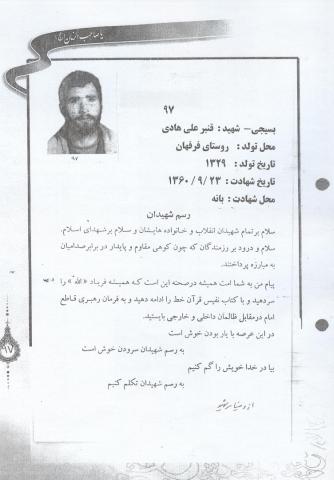 یا صاحب الزمان
۹۷
۹۷
بسیجی- شهید : قنبر علی هادی
محل تولد : روستای فرفهان
تاریخ تولد : ۱۳۲۹
تاریخ شهادت : ۲۳ /۹ / ۱۳۶۰
محل شهادت : بانه
رسم شهیدان
سلام بر تمام شهیدان انقلاب و خانواده هایشان و سلام بر شهدای اسلام.
سلام و درود بر رزمندگان که چون کوهی مقاوم و پایدار در برابر صدامیان
به مبارزه پرداختند.
پیام من به شما امت همیشه در صحنه این است که همیشه فریاد «الله» را
سر دهید و با کتاب نفیس قرآن خط را ادامه دهید و به فرمان رهبری قاطع
امام در مقابل ظالمان داخلی و خارجی بایستید.
در این عرصه با یار بودن خوش است
به رسم شهیدان سرودن خوش است
بیا در خدا خویش را گم کنیم
به رسم شهیدان تکلم کنیم
۱۷